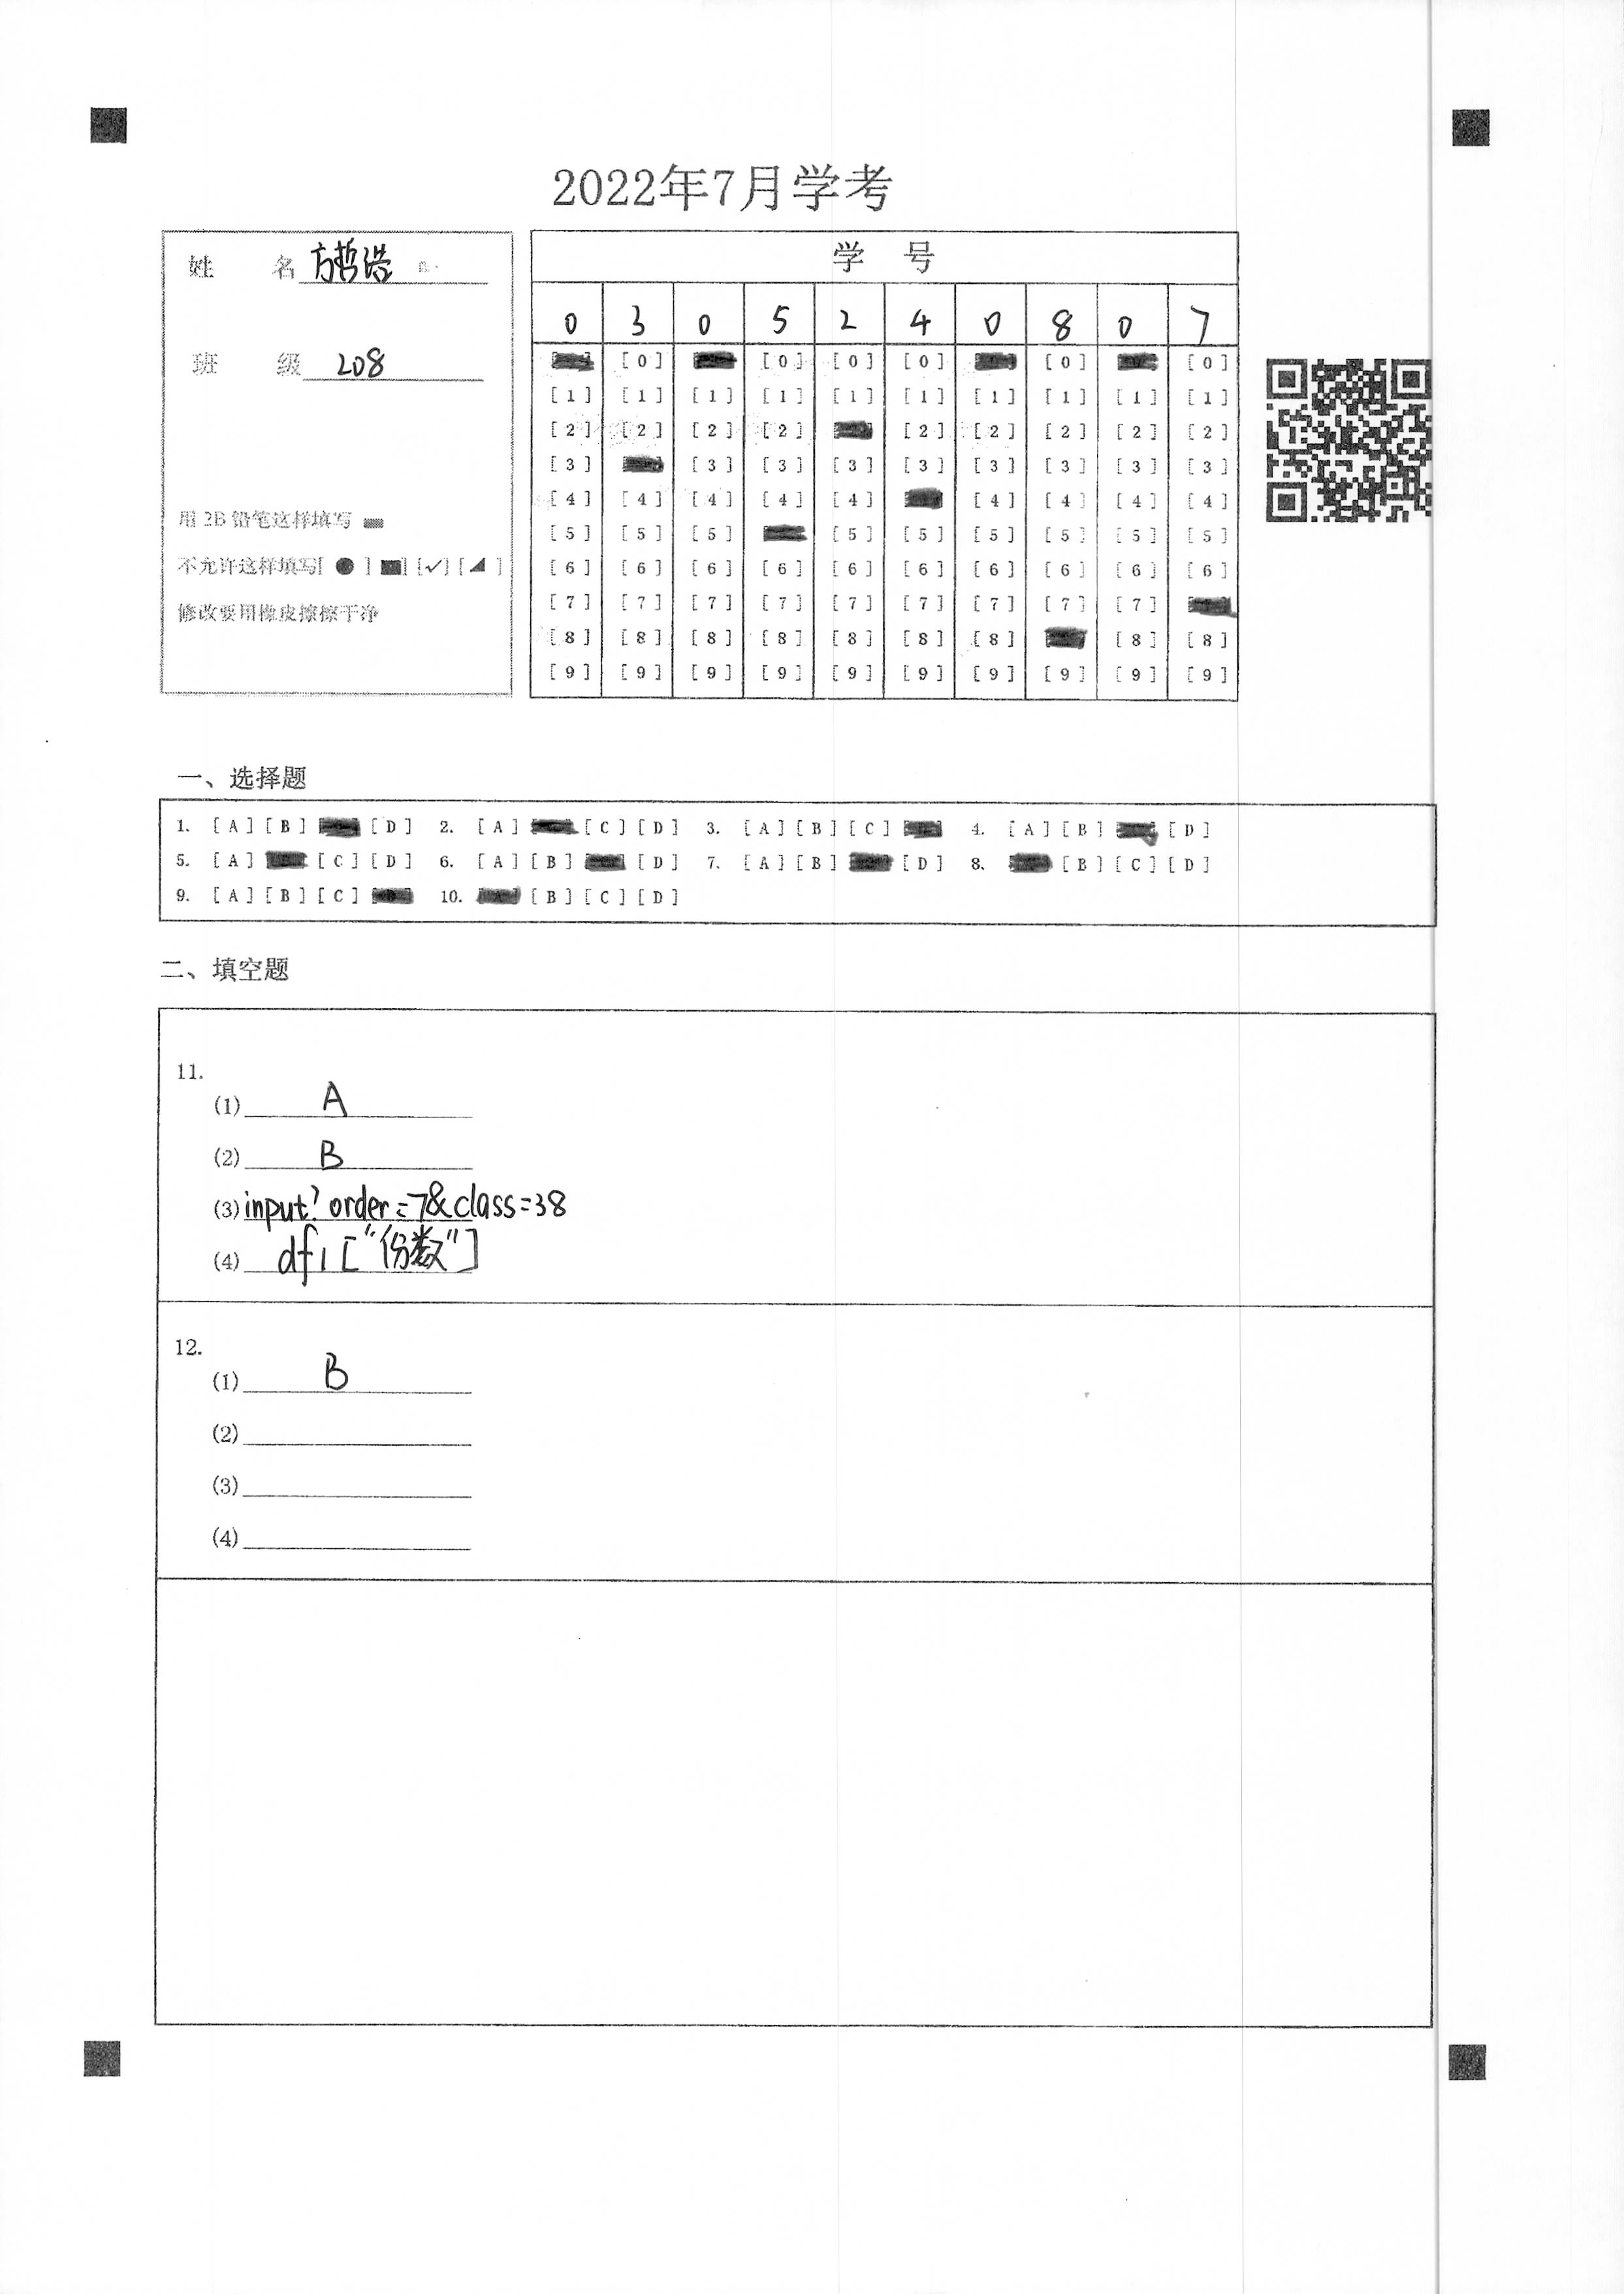 2022年7月学考
姓 名 方哲浩
班 级 208
用 2B 铅笔这样填写
不允许这样填写[ ● ] [■] [✓] [◢ ]
修改要用橡皮擦擦干净
学 号
0 3 0 5 2 4 0 8 0 7
[0] [0] [0] [0] [0] [0]
[1] [1] [1] [1] [1] [1] [1] [1] [1] [1]
[2] [2] [2] [2] [2] [2] [2] [2] [2]
[3] [3] [3] [3] [3] [3] [3] [3] [3]
[4] [4] [4] [4] [4] [4] [4] [4] [4]
[5] [5] [5] [5] [5] [5] [5] [5] [5]
[6] [6] [6] [6] [6] [6] [6] [6] [6] [6]
[7] [7] [7] [7] [7] [7] [7] [7] [7]
[8] [8] [8] [8] [8] [8] [8] [8] [8]
[9] [9] [9] [9] [9] [9] [9] [9] [9] [9]
一、选择题
1. [A] [B] [D] 2. [A] [C] [D] 3. [A] [B] [C] 4. [A] [B] [D]
5. [A] [C] [D] 6. [A] [B] [D] 7. [A] [B] [D] 8. [B] [C] [D]
9. [A] [B] [C] 10. [B] [C] [D]
二、填空题
11.
(1) A
(2) B
(3) input? order=7&class=38
(4) df1["份数"]
12.
(1) B
(2)
(3)
(4)